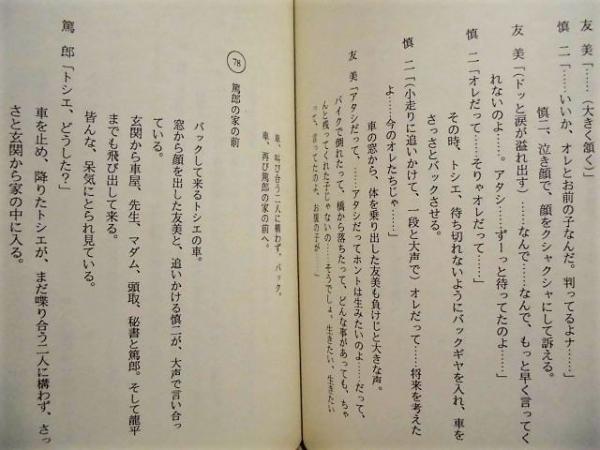 友　美「……（大きく頷く）」
慎　二「……いいか、オレとお前の子なんだ。判ってるよナ……」
慎二、泣き顔で、顔をクシャクシャにして訴える。
友　美「（ドッと涙が溢れ出す）……なんで……なんで、もっと早く言ってく
れないのよ……。アタシ……ずーっと待ってたのよ……」
慎　二「オレだって……そりゃオレだって……」
その時、トシエ、待ち切れないようにバックギヤを入れ、車を
さっさとバックさせる。
慎　二「（小走りに追いかけて、一段と大声で）オレだって……将来を考えた
よ……今のオレたちじゃ……」
車の窓から、体を乗り出した友美も負けじと大きな声。
友　美「アタシだって、……アタシだってホントは生みたいのよ……だって、
バイクで倒れたって、橋から落ちたって、どんな事があっても、ちゃ
んと残ってくれた子じゃないの……そうでしょ、生きたい、生きたい
って、言ってたのよ、お腹の子が……」
車、叫び合う二人に構わず、バック。
車、再び篤郎の家の前へ。
78　篤郎の家の前
バックして来るトシエの車。
窓から顔を出した友美と、追いかける慎二が、大声で言い合っ
ている。
玄関から車屋、先生、マダム、頭取、秘書と篤郎。そして龍平
までも飛び出して来る。
皆んな、呆気にとられ見ている。
篤　郎「トシエ、どうした？」
車を止め、降りたトシエが、まだ喋り合う二人に構わず、さっ
さと玄関から家の中に入る。